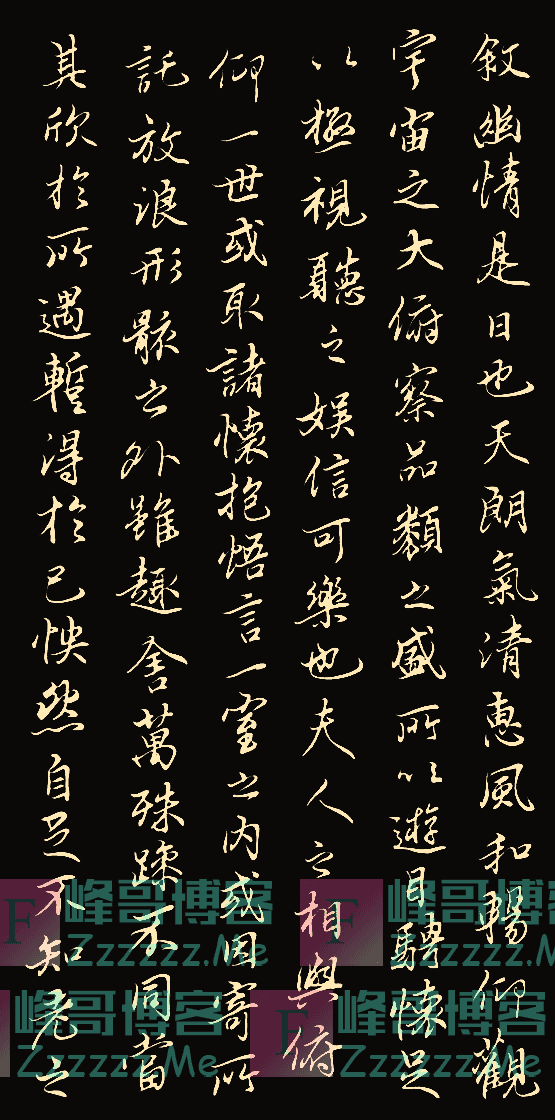 敘幽情是日也天朗氣清惠風和暢仰觀
宇宙之大俯察品類之盛所以遊目騁懷足
以極視聽之娛信可樂也夫人之相與俯
仰一世或取諸懷抱悟言一室之內或因寄所
託放浪形骸之外雖趣舍萬殊躁不同當
其欣於所遇暫得於己怏然自足不知老之
峰哥博客
Zzzzzz.Me
峰哥博客
Zzzzzz.Me
峰哥博客
Zzzzzz.Me
峰哥博客
Zzzzzz.Me